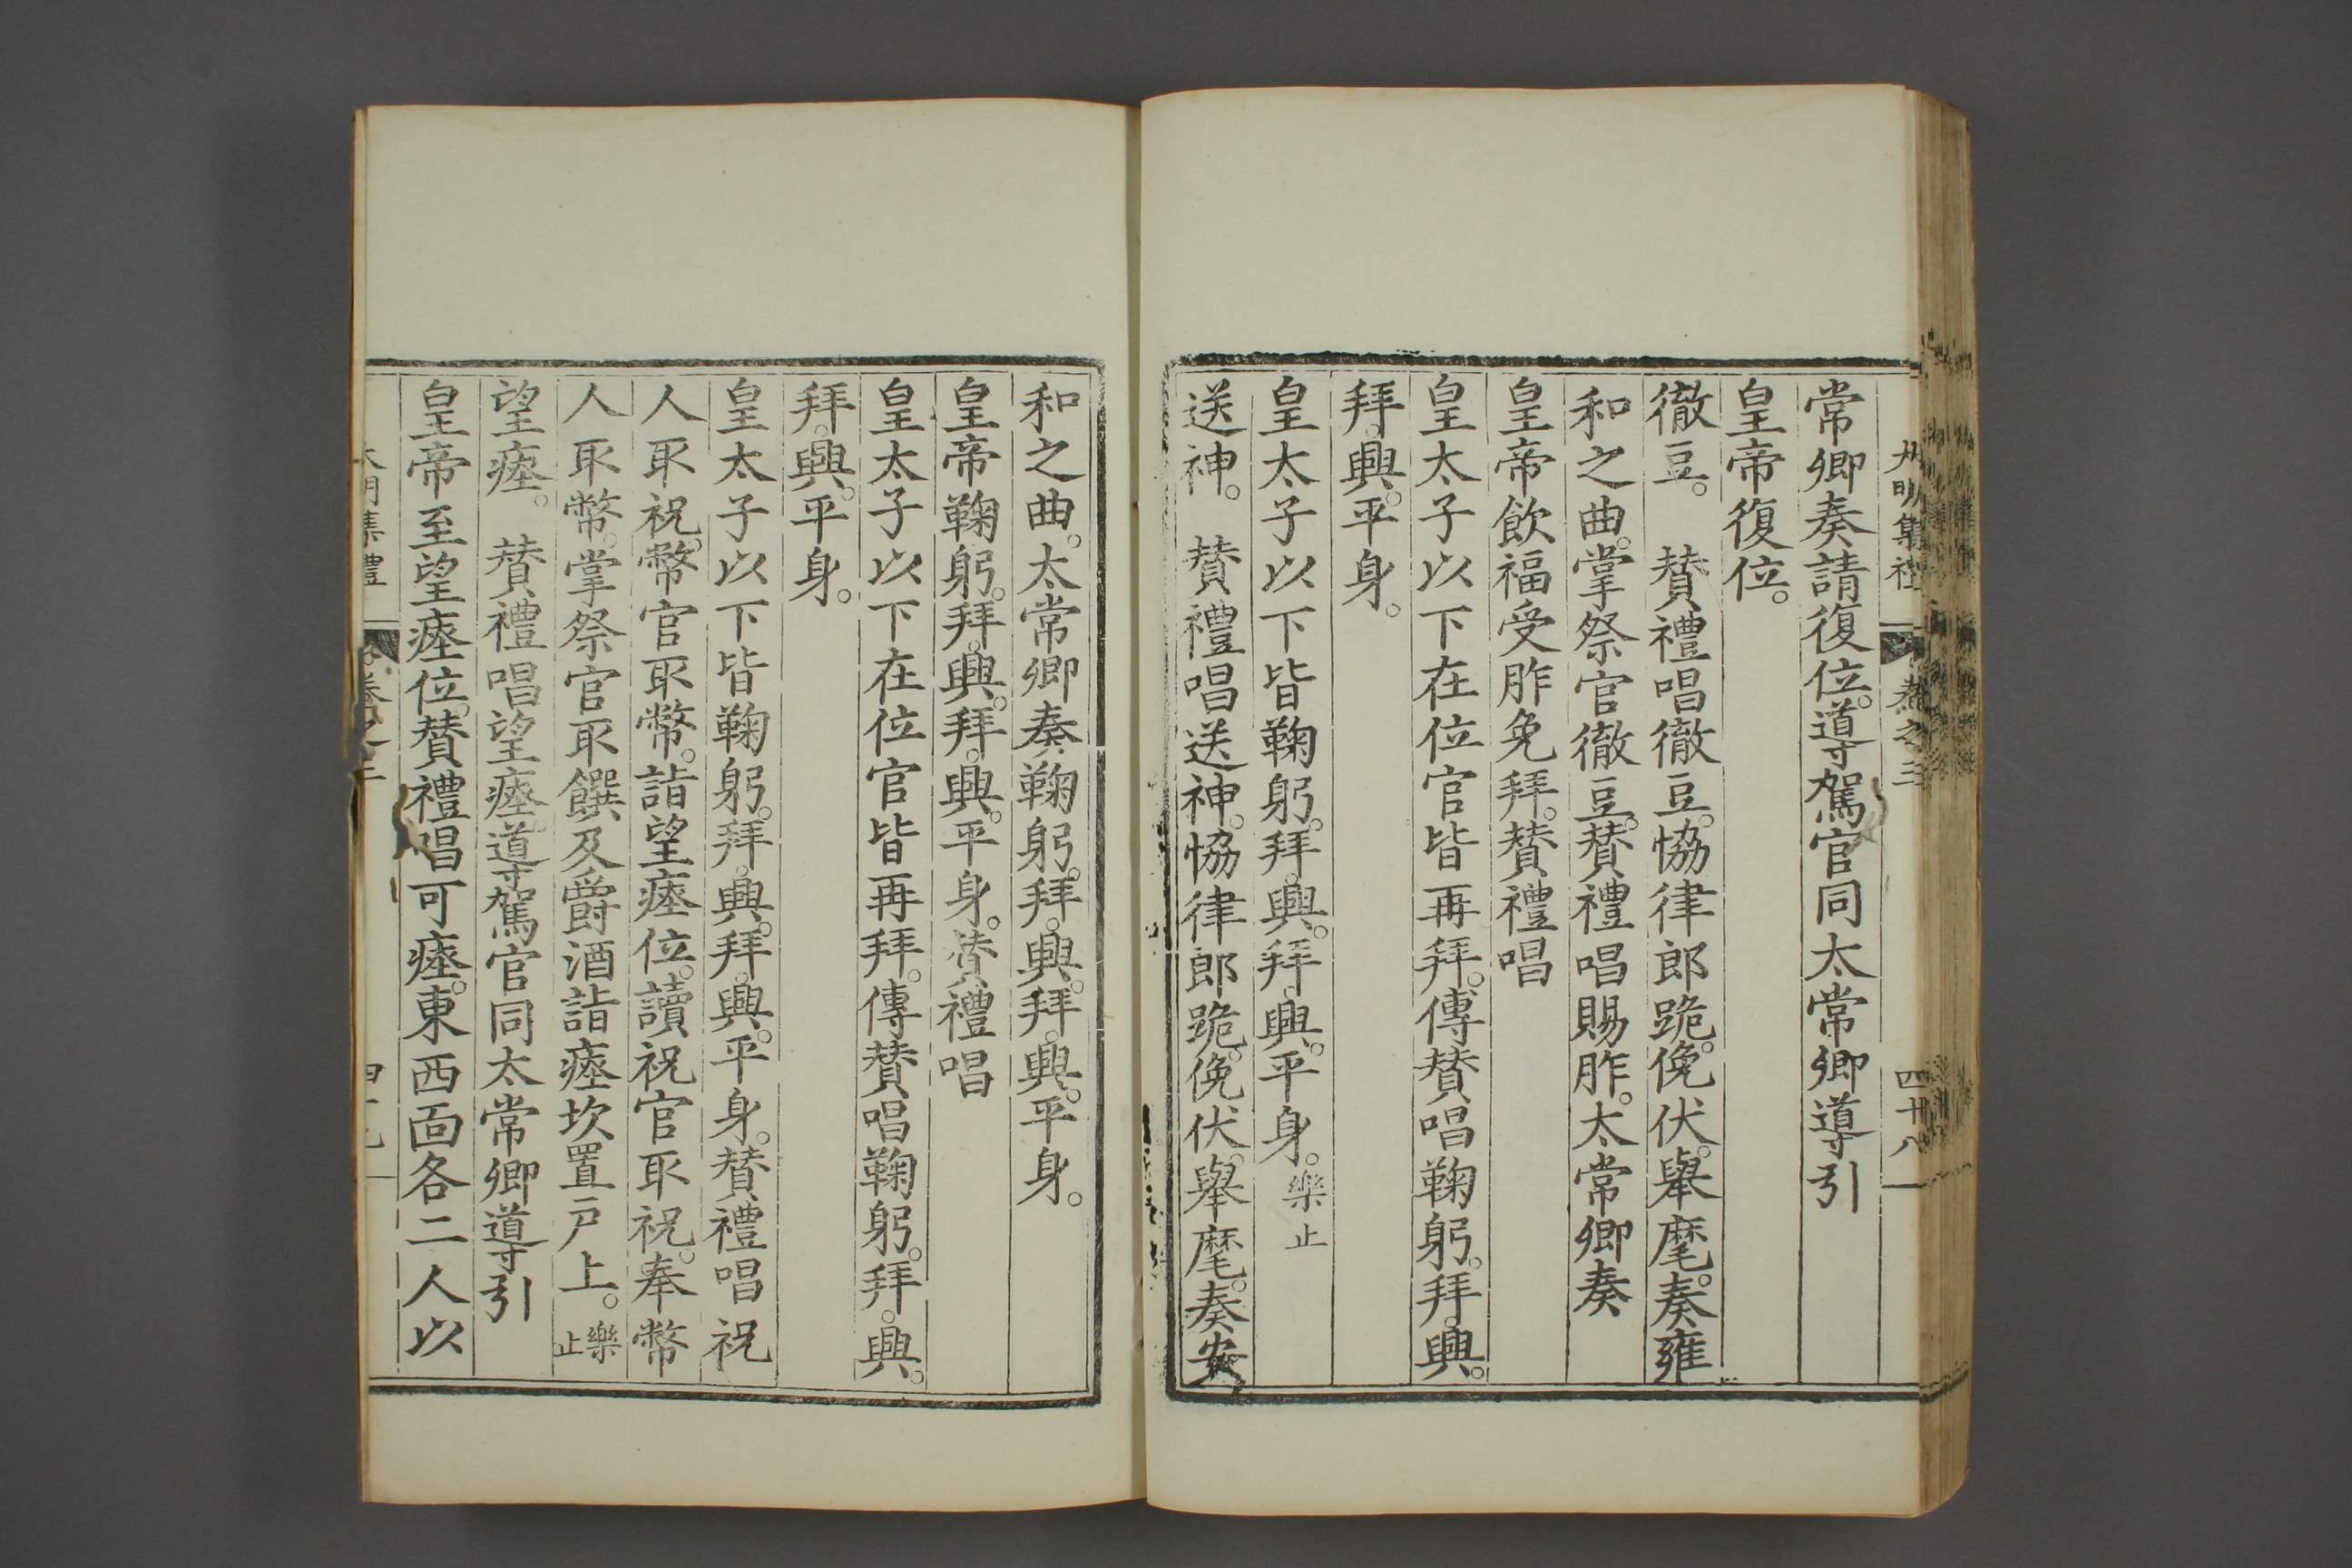 大明集禮 卷之三 四十八
常卿奏請復位。導駕官同太常卿導引
皇帝復位。
徹豆。 賛禮唱徹豆。恊律郎跪。俛伏。舉麾。奏雍
和之曲。掌祭官徹豆。賛禮唱賜胙。太常卿奏
皇帝飲福受胙免拜。賛禮唱
皇太子以下在位官皆再拜。傳賛唱鞠躬。拜。興。
拜。興。平身。
皇太子以下皆鞠躬。拜。興。拜。興。平身。樂止
送神。 賛禮唱送神。恊律郎跪。俛伏。舉麾。奏安
和之曲。太常卿奏鞠躬。拜。興。拜。興。平身。
皇帝鞠躬。拜。興。拜。興。平身。賛禮唱
皇太子以下在位官皆再拜。傳賛唱鞠躬。拜。興。
拜。興。平身。
皇太子以下皆鞠躬。拜。興。拜。興。平身。賛禮唱祝
人取祝。幣官取幣。詣望瘞位。讀祝官取祝。奉幣
人取幣。掌祭官取饌及爵酒詣瘞坎置戸上。樂止
望瘞。 賛禮唱望瘞。導駕官同太常卿導引
皇帝至望瘞位。賛禮唱可瘞。東西面各二人以
大明集禮 卷之三